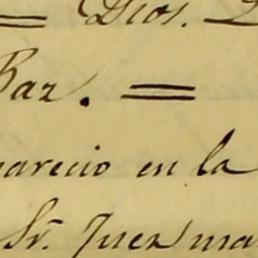 = Dios.
Paz. =
parecio en la
Sr. Juez ma